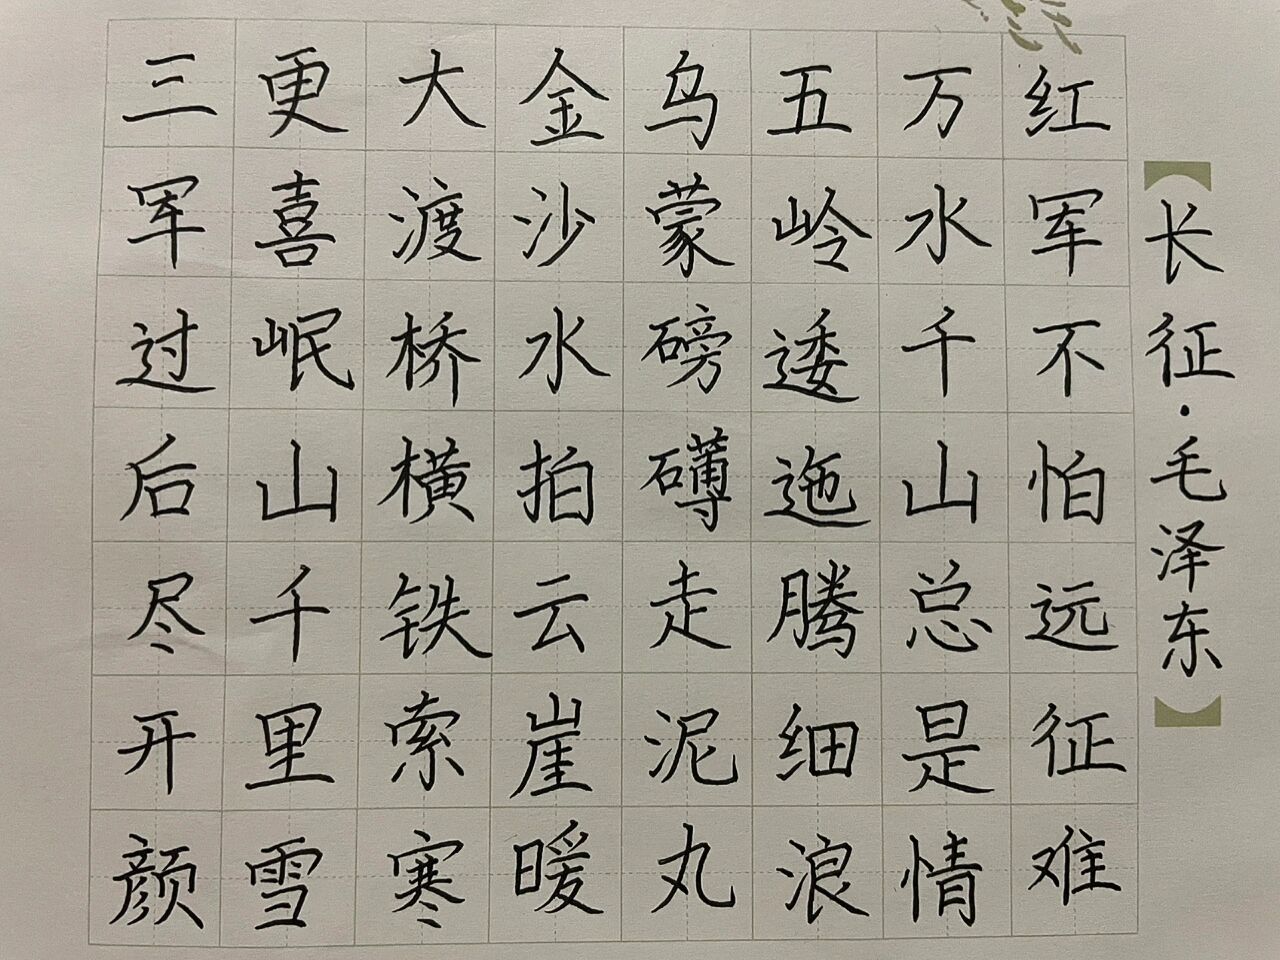 【长征·毛泽东】
红军不怕远征难
万水千山总是情
五岭逶迤腾细浪
乌蒙磅礴走泥丸
金沙水拍云崖暖
大渡桥横铁索寒
更喜岷山千里雪
三军过后尽开颜